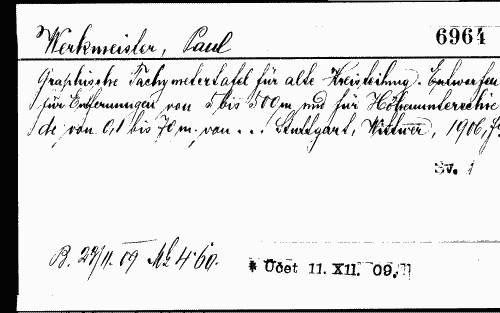 Werkmeister, Paul
6964
Graphische Tachymetertafel für alte Kreisteilung. Entworfen
für Entfernungen von 5 bis 500 m und für Höhenunterschie
de von 0,1 bis 70 m. von ... Stuttgart, Wittwer, 1906,
Sv. 1
B. 29/11. 09 Mk 4.60.
* Účet 11. XII. 09.